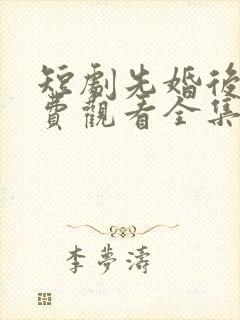 短劇先婚後
費觀看全集
李夢濤